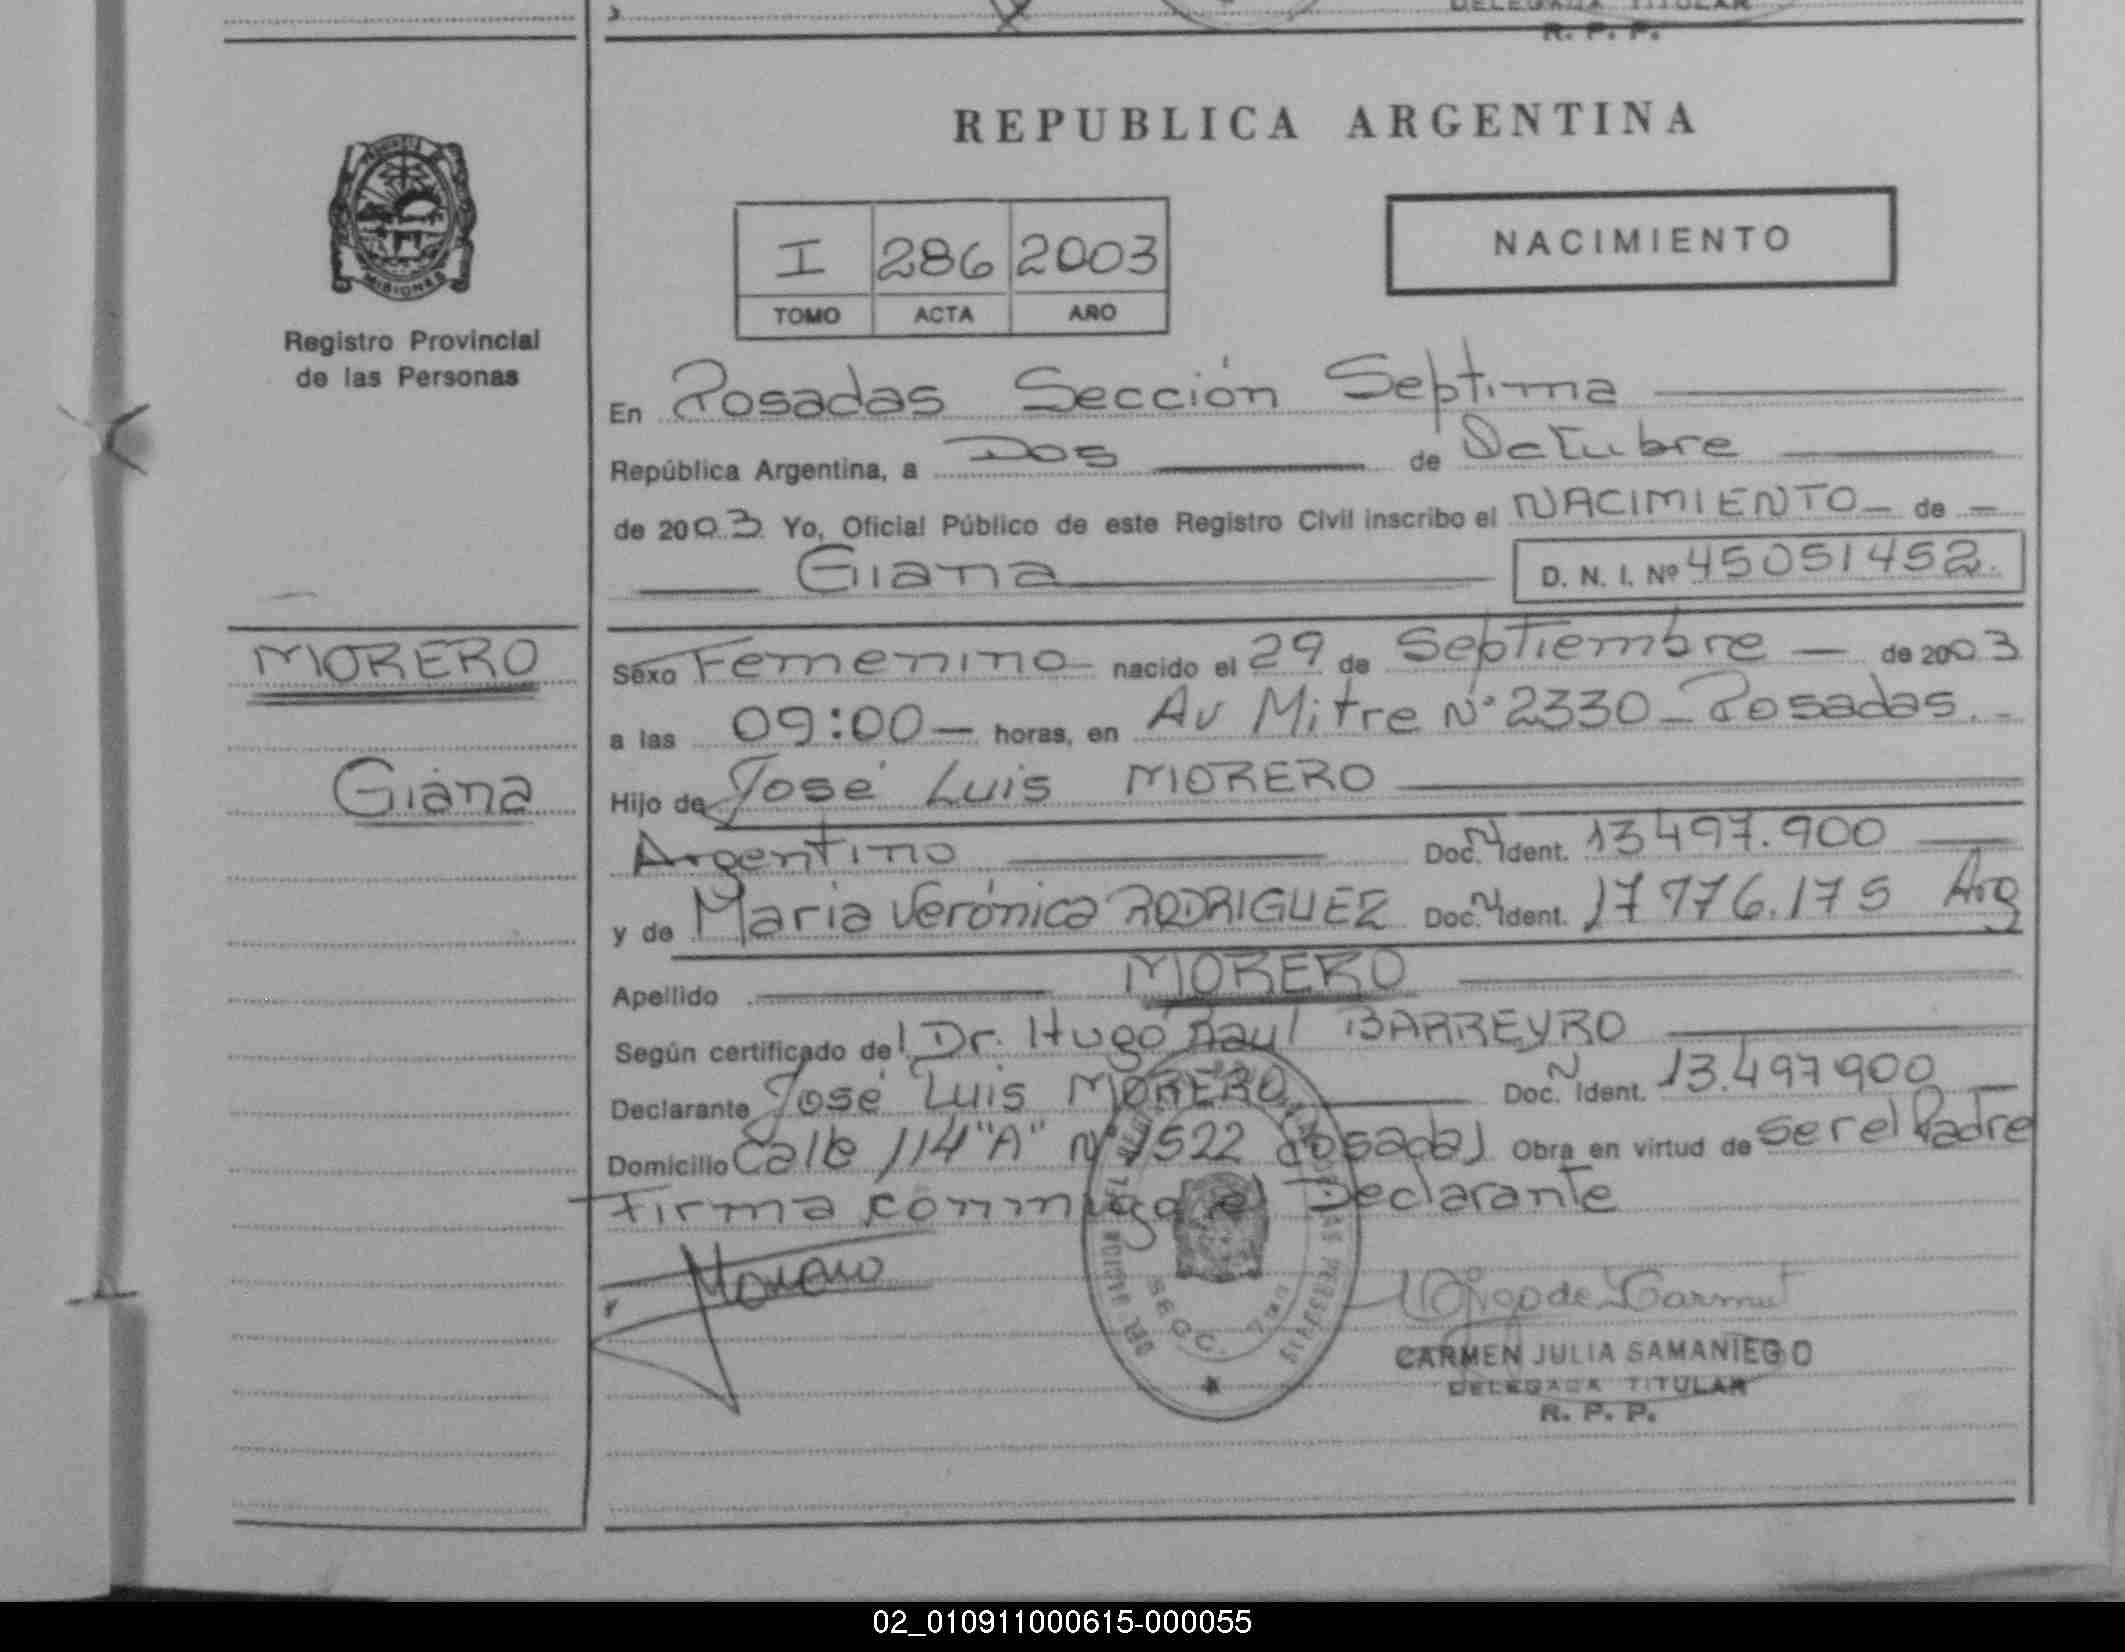 DELEGADA TITULAR
R. P. P.
MISIONES
Registro Provincial
de las Personas
MORERO
Giana
REPUBLICA ARGENTINA
I 286 2003
TOMO ACTA AÑO
NACIMIENTO
En Posadas Sección Septima
República Argentina, a Dos de Octubre
de 2003 Yo, Oficial Público de este Registro Civil inscribo el NACIMIENTO de
Giana D. N. I. Nº 45051452.
Sexo Femenino nacido el 29 de Septiembre de 2003
a las 09:00 horas, en Av Mitre Nº 2330 - Posadas.
Hijo de José Luis MORERO
Argentino Doc. N Ident. 13497.900
y de Maria Verónica RODRIGUEZ Doc. N Ident. 17776.175 Arg
Apellido MORERO
Según certificado del Dr. Hugo Raul BARREYRO
Declarante José Luis MORERO Doc. N Ident. 13.497900
Domicilio Calle 114 "A" Nº 1522 Posadas Obra en virtud de ser el Padre
Firma conmigo el Declarante
SECC. 7ma
CARMEN JULIA SAMANIEGO
DELEGADA TITULAR
R. P. P.
02_010911000615-000055